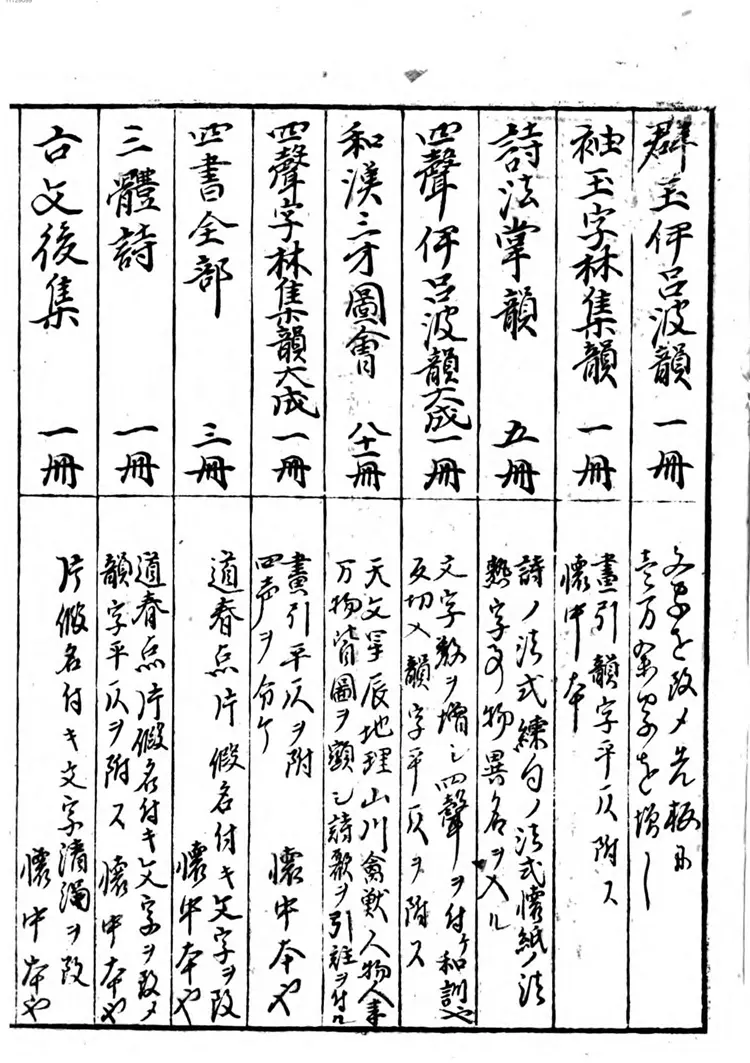 群玉伊呂波韻 一冊
文字を改メ先板に
壱万余字を増し
袖玉字林集韻 一冊
畫引韻字平仄附ス
懐中本
詩法掌韻 五冊
詩ノ法式練句ノ法式懐紙ノ法
熟字事物異名ヲ入ル
四聲伊呂波韻大成 一冊
文字数ヲ増シ四聲ヲ付ケ和訓也
反切入韻字平仄ヲ附ス
和漢三才圖會 八十一冊
天文星辰地理山川禽獣人物人事
万物皆圖ヲ顕シ詩歌ヲ引註ヲ付ル
四聲字林集韻大成 一冊
畫引平仄ヲ附
四声ヲ分ケ 懐中本也
四書全部 三冊
道春点片假名付キ文字ヲ改
懐中本也
三體詩 一冊
道春点片假名付キ文字ヲ改メ
韻字平仄ヲ附ス 懐中本也
古文後集 一冊
片假名付キ文字清濁ヲ改
懐中本也